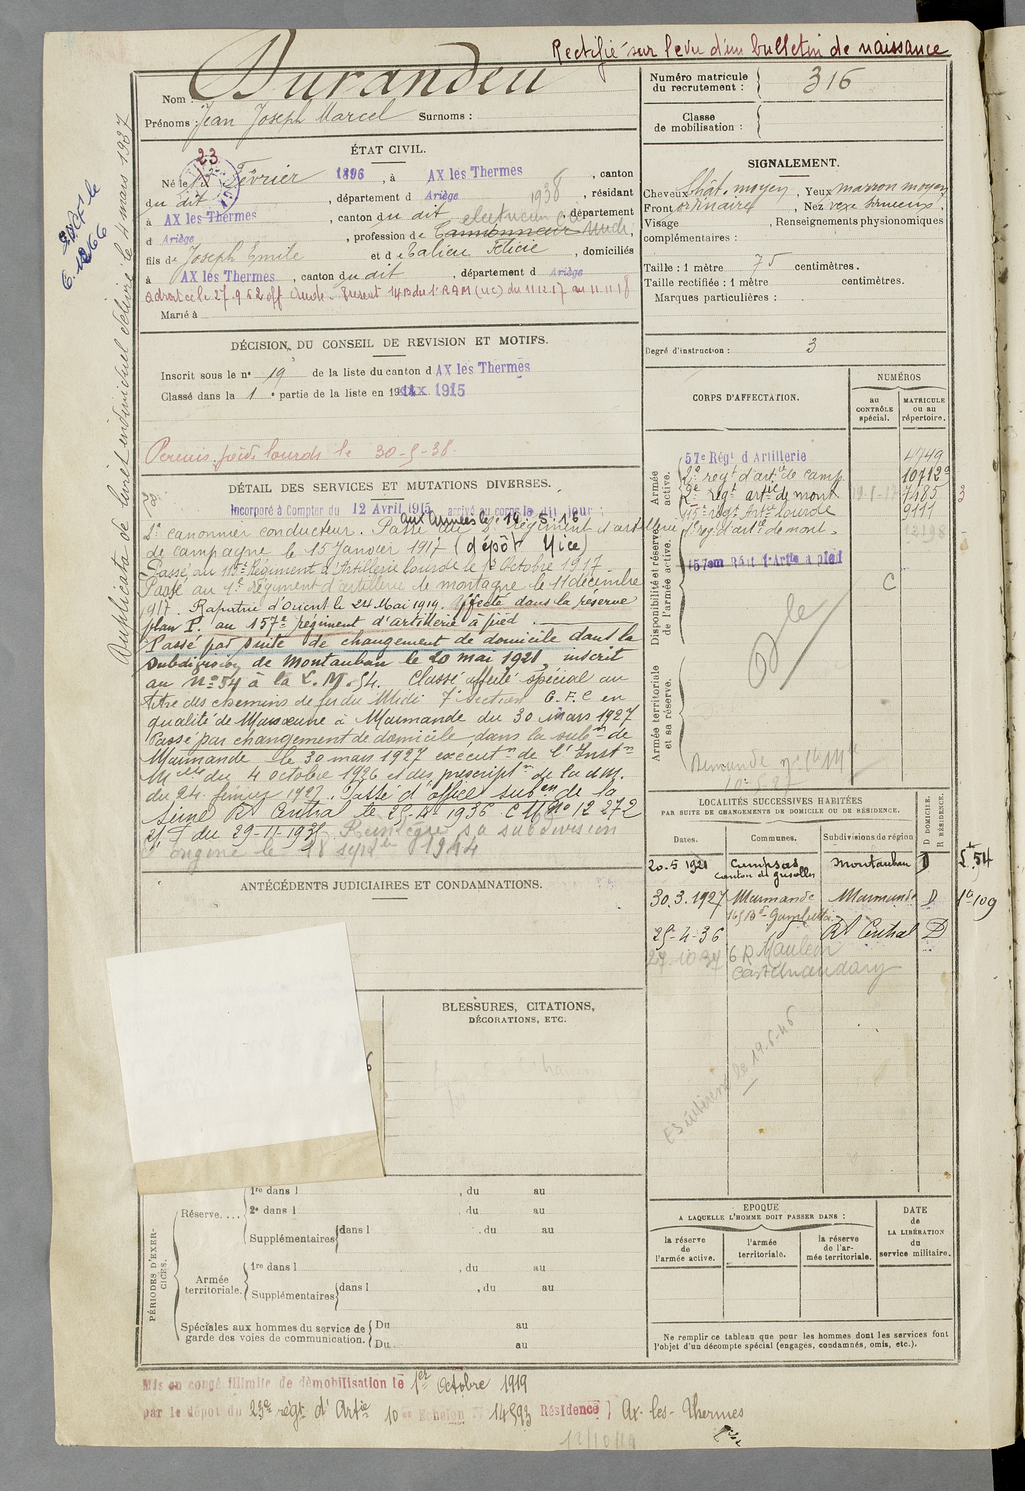 Rectifié sur le vu d'un bulletin de naissance
Nom : Durandeu
Prénoms : Jean Joseph Marcel Surnoms :
Numéro matricule du recrutement : 316
Classe de mobilisation :
ÉTAT CIVIL.
23
Né le Février 1896, à AX les Thermes, canton
du dit, département d Ariège, résidant
1938
à AX les Thermes, canton du dit, département
electricien
d Ariège, profession de
fils de Joseph Emile et d, domiciliés
à AX les Thermes, canton du dit, département d Ariège
Marié à
DÉCISION DU CONSEIL DE REVISION ET MOTIFS.
Inscrit sous le n° 19 de la liste du canton d AX les Thermes
Classé dans la 1e partie de la liste en 19 1915
Permis poids lourds le 30-5-38.
DÉTAIL DES SERVICES ET MUTATIONS DIVERSES.
Incorporé à Compter du 12 Avril 1915 arrivé au corps le dit jour
aux Armées le 16-5-16
2e canonnier conducteur. Passé au 2e Régiment d'artillerie
de campagne le 15 Janvier 1917 (dépôt Nice)
Passé au 115e Régiment d'Artillerie lourde le 1er Octobre 1917.
Passé au 1er Régiment d'artillerie de montagne le 11 décembre
1917. Rapatrié d'Orient le 24 Mai 1919. Affecté dans la réserve
plan P. au 157e régiment d'artillerie à pied.
Passé par suite de changement de domicile dans la
subdivision de Montauban le 20 mai 1921, inscrit
au N° 54 à la L.M. 54. Classé affecté spécial au
titre des chemins de fer du Midi 7e Section C.F.C en
qualité de Manœuvre à Marmande du 30 mars 1927
Passé par changement de domicile dans la subon de
Marmande le 30 mars 1927 exécutn de l'Instn
Mlle du 4 octobre 1926 et des prescriptn de la dM.
du 24 février 1927. Passé d'office subon de la
Seine Rt Central le 25-4-1936 C M no 12 272
du 29-11-193
Réintégré sa subdivision
d'origine le 28 septbre 1944
ANTÉCÉDENTS JUDICIAIRES ET CONDAMNATIONS.
BLESSURES, CITATIONS,
DÉCORATIONS, ETC.
PÉRIODES D'EXERCICES.
Réserve....
1re dans l , du au
2e dans l , du au
Supplémentaires dans l , du au
Armée territoriale.
1re dans l , du au
Supplémentaires dans l , du au
Spéciales aux hommes du service de garde des voies de communication.
Du au
Du au
SIGNALEMENT.
Cheveux chât. moyen, Yeux marron moyen
Front ordinaire, Nez
Visage , Renseignements physionomiques
complémentaires :
Taille : 1 mètre 75 centimètres.
Taille rectifiée : 1 mètre centimètres.
Marques particulières :
Degré d'instruction : 3
CORPS D'AFFECTATION.
NUMÉROS
au CONTRÔLE spécial.
MATRICULE ou au répertoire.
Armée active.
57e Régt d'Artillerie 4749
2e regt d'art de camp 10712
2e regt artie de mont 7485
115e regt Artie lourde 9111
1er reg d'art de mont.
Disponibilité et réserve de l'armée active.
157eme Rgt d'Artie à pied
C
Armée territoriale et sa réserve.
LOCALITÉS SUCCESSIVES HABITÉES
PAR SUITE DE CHANGEMENTS DE DOMICILE OU DE RÉSIDENCE.
Dates. Communes. Subdivisions de région D DOMICILE. R RÉSIDENCE.
20.5 1921 Campsas canton de Grisolles Montauban D 54
30.3.1927 Marmande Marmande D 109
Bd Gambetta
25-4-36 Rt Central D
6 R Mauléon
Castelnaudary
le 19-6-46
EPOQUE
A LAQUELLE L'HOMME DOIT PASSER DANS :
la réserve de l'armée active.
l'armée territoriale.
la réserve de l'armée territoriale.
DATE de LA LIBÉRATION du service militaire.
Ne remplir ce tableau que pour les hommes dont les services font
l'objet d'un décompte spécial (engagés, condamnés, omis, etc.).
Mis en congé illimité de démobilisation le 1er Octobre 1919
par le dépot du 23e régt d'Artie 10e Echelon N° 14593 Résidence } Ax-les-Thermes
12/10/19
Duplicata de livret individuel délivré le 4 mars 1937